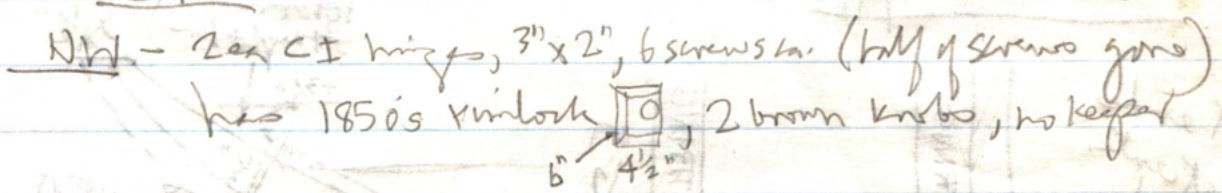 NW - 2ea CI hinges, 3"x2", 6 screws ea. (half of screws gone)
has 1850's rimlock, 2 brown knobs, no keeper
6" 4½"